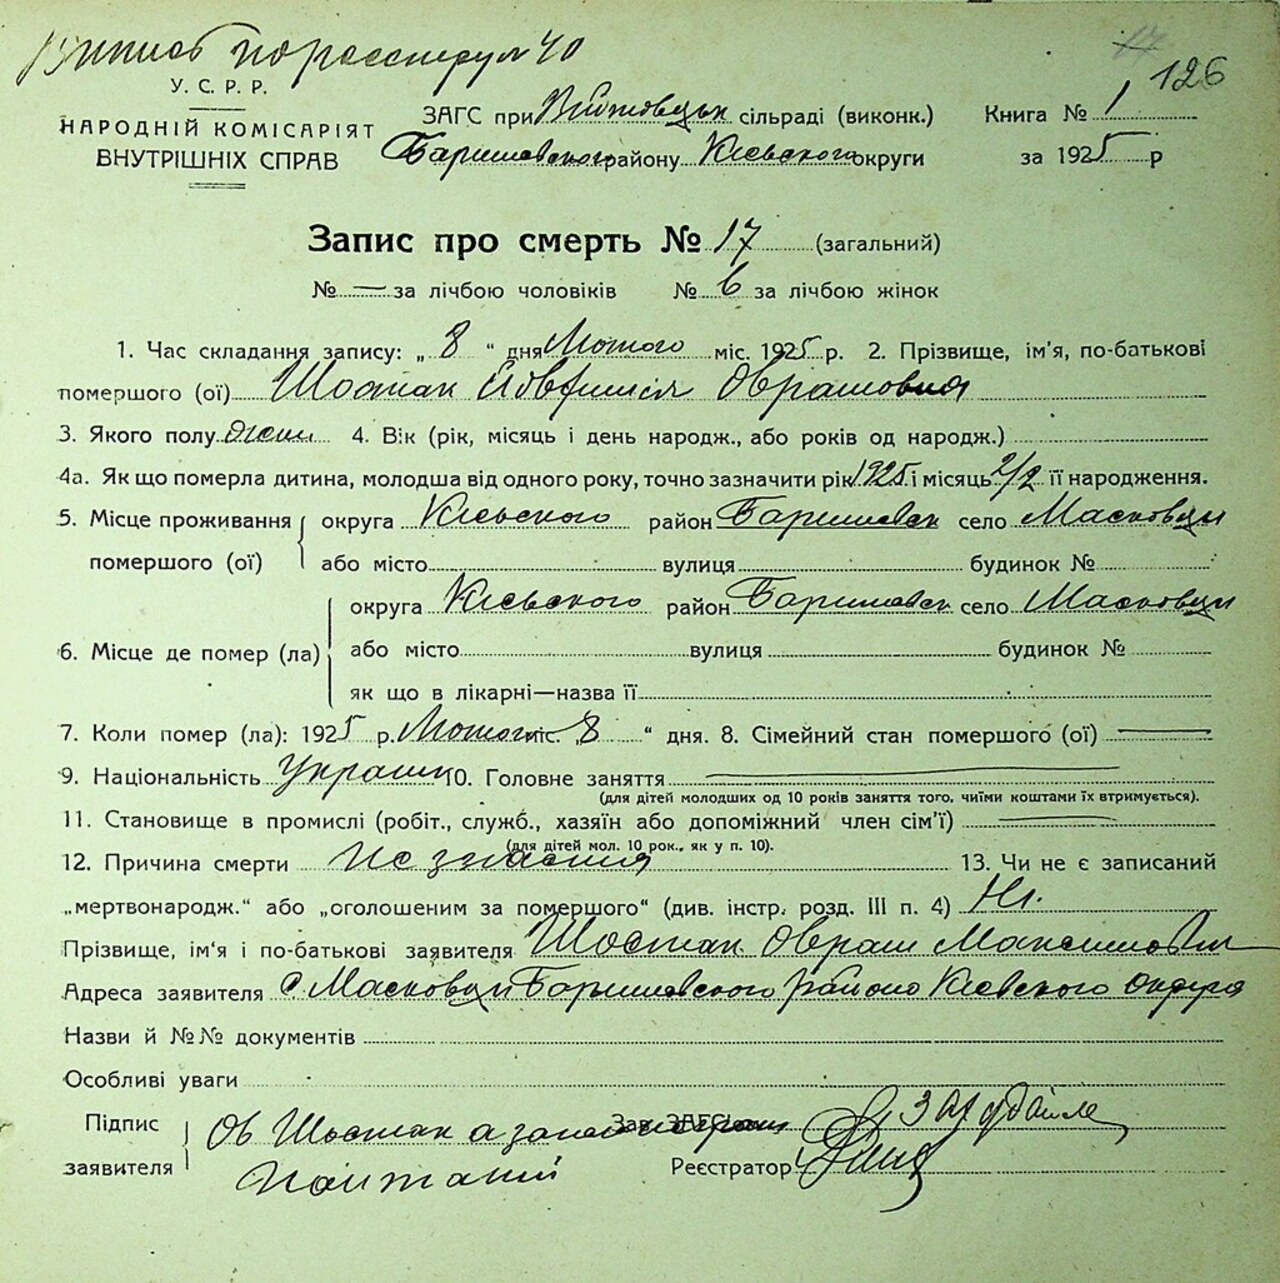 126
У. С. Р. Р.
НАРОДНІЙ КОМІСАРІЯТ
ВНУТРІШНІХ СПРАВ
ЗАГС при сільраді (виконк.)
Баришевского району Кіевского округи
Книга № 1
за 1925 р
Запис про смерть № 17 (загальний)
№ — за лічбою чоловіків № 6 за лічбою жінок
1. Час складання запису: „ 8 “ дня Лютого міс. 1925 р. 2. Прізвище, ім'я, по-батькові
помершого (ої) Шостак Оврамовна
3. Якого полу жін 4. Вік (рік, місяць і день народж., або років од народж.)
4а. Як що померла дитина, молодша від одного року, точно зазначити рік 1925 і місяць 2/2 її народження.
5. Місце проживання помершого (ої) округа Кієвского район Баришевск село Масковци
або місто вулиця будинок №
6. Місце де помер (ла) округа Кієвского район Баришевск село Масковци
або місто вулиця будинок №
як що в лікарні—назва її
7. Коли помер (ла): 1925 р. Лютого міс. „8 “ дня. 8. Сімейний стан помершого (ої) —
9. Національність Украін 10. Головне заняття —
(для дітей молодших од 10 років заняття того, чиїми коштами їх втримується).
11. Становище в промислі (робіт., служб., хазяїн або допоміжний член сім'ї) —
(для дітей мол. 10 рок., як у п. 10).
12. Причина смерти 13. Чи не є записаний
„мертвонародж.“ або „оголошеним за помершого“ (див. інстр. розд. III п. 4) Ні.
Прізвище, ім'я і по-батькові заявителя Шостак Оврам Максимович
Адреса заявителя с Масковци Баришевского району Кієвского округа
Назви й №№ документів
Особливі уваги
Підпис заявителя Ов Шостак а
Зав. ЗАГС'ом
Реєстратор